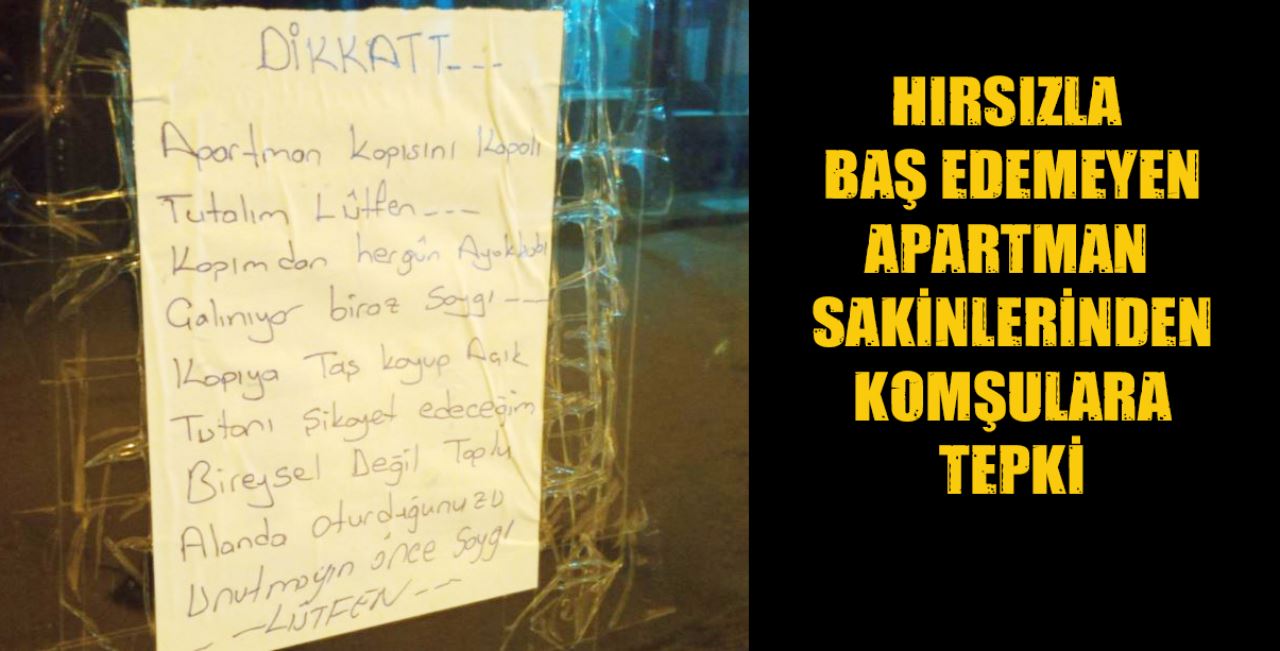 DİKKATT---
Apartman kapısını Kapalı
Tutalım Lûtfen---
Kapımdan hergün Ayakkabı
Çalınıyor biraz Saygı---
Kapıya Taş koyup Açık
Tutanı şikayet edeceğim
Bireysel Değil Toplu
Alanda oturduğunuzu
Unutmayın önce Saygı
--LÜTFEN---
HIRSIZLA
BAŞ EDEMEYEN
APARTMAN
SAKİNLERİNDEN
KOMŞULARA
TEPKİ